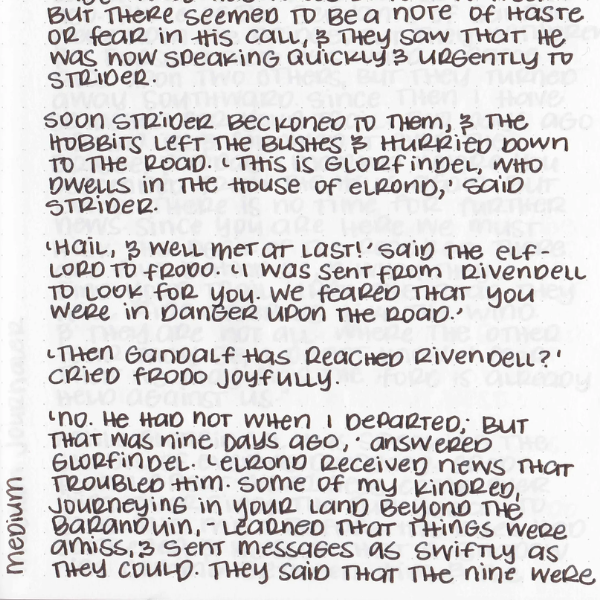 BUT THERE SEEMED TO BE A NOTE OF HASTE
OR FEAR IN HIS CALL, & THEY SAW THAT HE
WAS NOW SPEAKING QUICKLY & URGENTLY TO
STRIDER.
SOON STRIDER BECKONED TO THEM, & THE
HOBBITS LEFT THE BUSHES & HURRIED DOWN
TO THE ROAD. 'THIS IS GLORFINDEL, WHO
DWELLS IN THE HOUSE OF ELROND,' SAID
STRIDER.
'HAIL, & WELL MET AT LAST!' SAID THE ELF-
LORD TO FRODO. 'I WAS SENT FROM RIVENDELL
TO LOOK FOR YOU. WE FEARED THAT YOU
WERE IN DANGER UPON THE ROAD.'
'THEN GANDALF HAS REACHED RIVENDELL?'
CRIED FRODO JOYFULLY.
'NO. HE HAD NOT WHEN I DEPARTED; BUT
THAT WAS NINE DAYS AGO,' ANSWERED
GLORFINDEL. 'ELROND RECEIVED NEWS THAT
TROUBLED HIM. SOME OF MY KINDRED,
JOURNEYING IN YOUR LAND BEYOND THE
BARANDUIN, LEARNED THAT THINGS WERE
AMISS, & SENT MESSAGES AS SWIFTLY AS
THEY COULD. THEY SAID THAT THE NINE WERE
MEDIUM